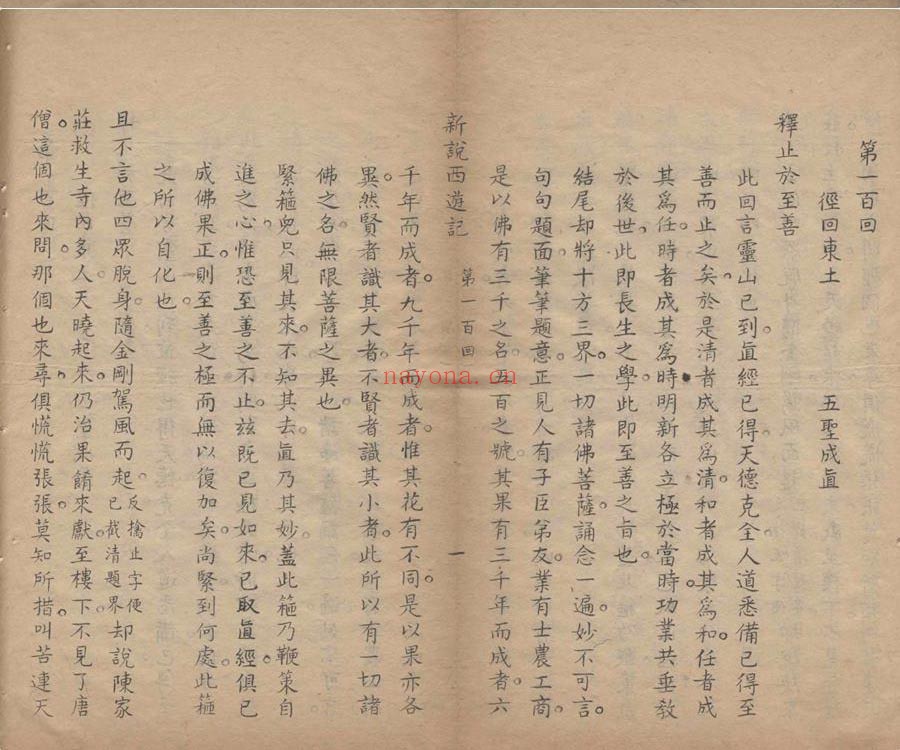 第一百回
徑回東土　五聖成眞
釋止於至善
此回言靈山已到。眞經已得。天德克全。人道悉備。已得至
善而止之矣。於是清者成其爲清。和者成其爲和。任者成
其爲任。時者成其爲時。明新各立極於當時。功業共垂敎
於後世。此即長生之學。此即至善之旨也。
結尾却將十方三界。一切諸佛菩薩。誦念一遍。妙不可言。
句句題面。筆筆題意。正見人有子臣弟友。業有士農工商。
是以佛有三千之名。五百之號。其果有三千年而成者。六
新說西遊記　第一百回　一
千年而成者。九千年而成者。惟其花有不同。是以果亦各
異。然賢者識其大者。不賢者識其小者。此所以有一切諸
佛之名。無限菩薩之異也。
緊箍兒只見其來。不知其去。眞乃其妙。蓋此箍乃鞭策自
進之心。惟恐至善之不止。玆既已見如來。已取眞經。俱已
成佛果正。則至善之極而無以復加矣。尚緊到何處。此箍
之所以自化也。
且不言他四眾脫身。隨金剛駕風而起。反擒止字便已截清題界。却說陳家
莊救生寺內多人。天曉起來。仍治果餚來獻。至樓下。不見了唐
僧。這個也來問。那個也來尋。俱慌慌張張。莫知所措。叫苦連天
nayona.cn